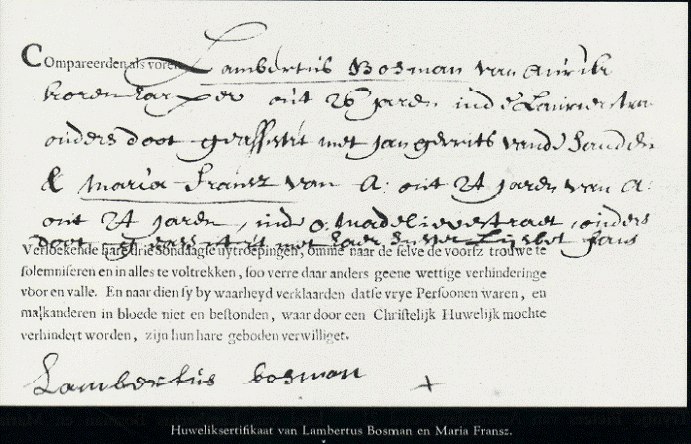 COmpareerden als voren Lambertus Bosman van Aurik
korendraeger out 26 jaren ind Lauwierstra
ouders doot geassistert met jan gerrits vande Sanden
& Maria Fransz van A: out 24 jaren van A:
out 24 jaren, ind o: madelievestraet, ouders
doot geassistert met haer suster Lijsbet jans
Versoekende hare drie sondaagse uytroepingen, omme naar de selve de voorsz trouwe te
solemniseren en in alles te voltrekken, soo verre daar anders geene wettige verhinderinge
voor en valle. En naar dien sy by waarheyd verklaarden datse vrye Persoonen waren, en
malkanderen in bloede niet en bestonden, waar door een Christelijk Huwelijk mochte
verhindert worden, zijn hun hare geboden verwilliget.
Lambertus bosman +
Huweliksertifikaat van Lambertus Bosman en Maria Fransz.